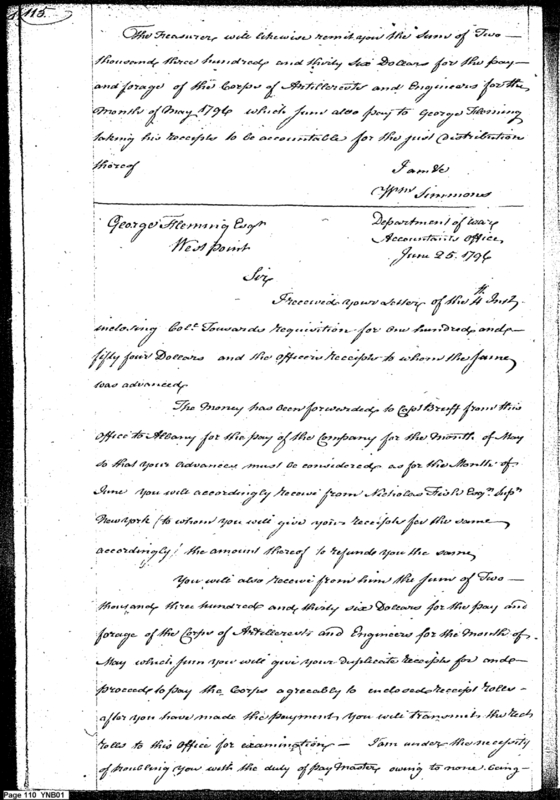 115.
The Treasurer will likewise remit you the Sum of Two
thousand three hundred and thirty Six Dollars for the pay
and forage of the Corps of Artillerists and Engineers for the
Month of May 1796 which Sum also pay to George Fleming
taking his receipts to be accountable for the just distribution
thereof
I am &c
Wm Simmons
George Fleming Esqr
West Point
Department of War
Accountants Office
June 25. 1796
Sir
I received your Letter of the 4th Inst,
inclosing Colo. Towsards requisition for One hundred and
fifty four Dollars and the Officers receipts to whom the Same
was advanced
The Money has been forwarded to Capt Bruff from this
Office to Albany for the pay of the Company for the Month of May
so that your advances must be considered as for the Month of
June you will accordingly receive from Nicholas Fish Esqr. Supr
New York (to whom you will give your receipts for the same
accordingly) the amount thereof to refund you the same
You will also receive from him the Sum of Two
thousand three hundred and thirty six Dollars for the pay and
forage of the Corps of Artillerists and Engineers for the month of
May which sum you will give your duplicate receipts for and
proceed to pay the Corps agreeably to inclosed receipt rolls
after you have made the payment you will transmit the rect
rolls to this Office for examination — I am under the necessity
of troubling you with the duty of pay Master owing to none being
Page 110 YNB01